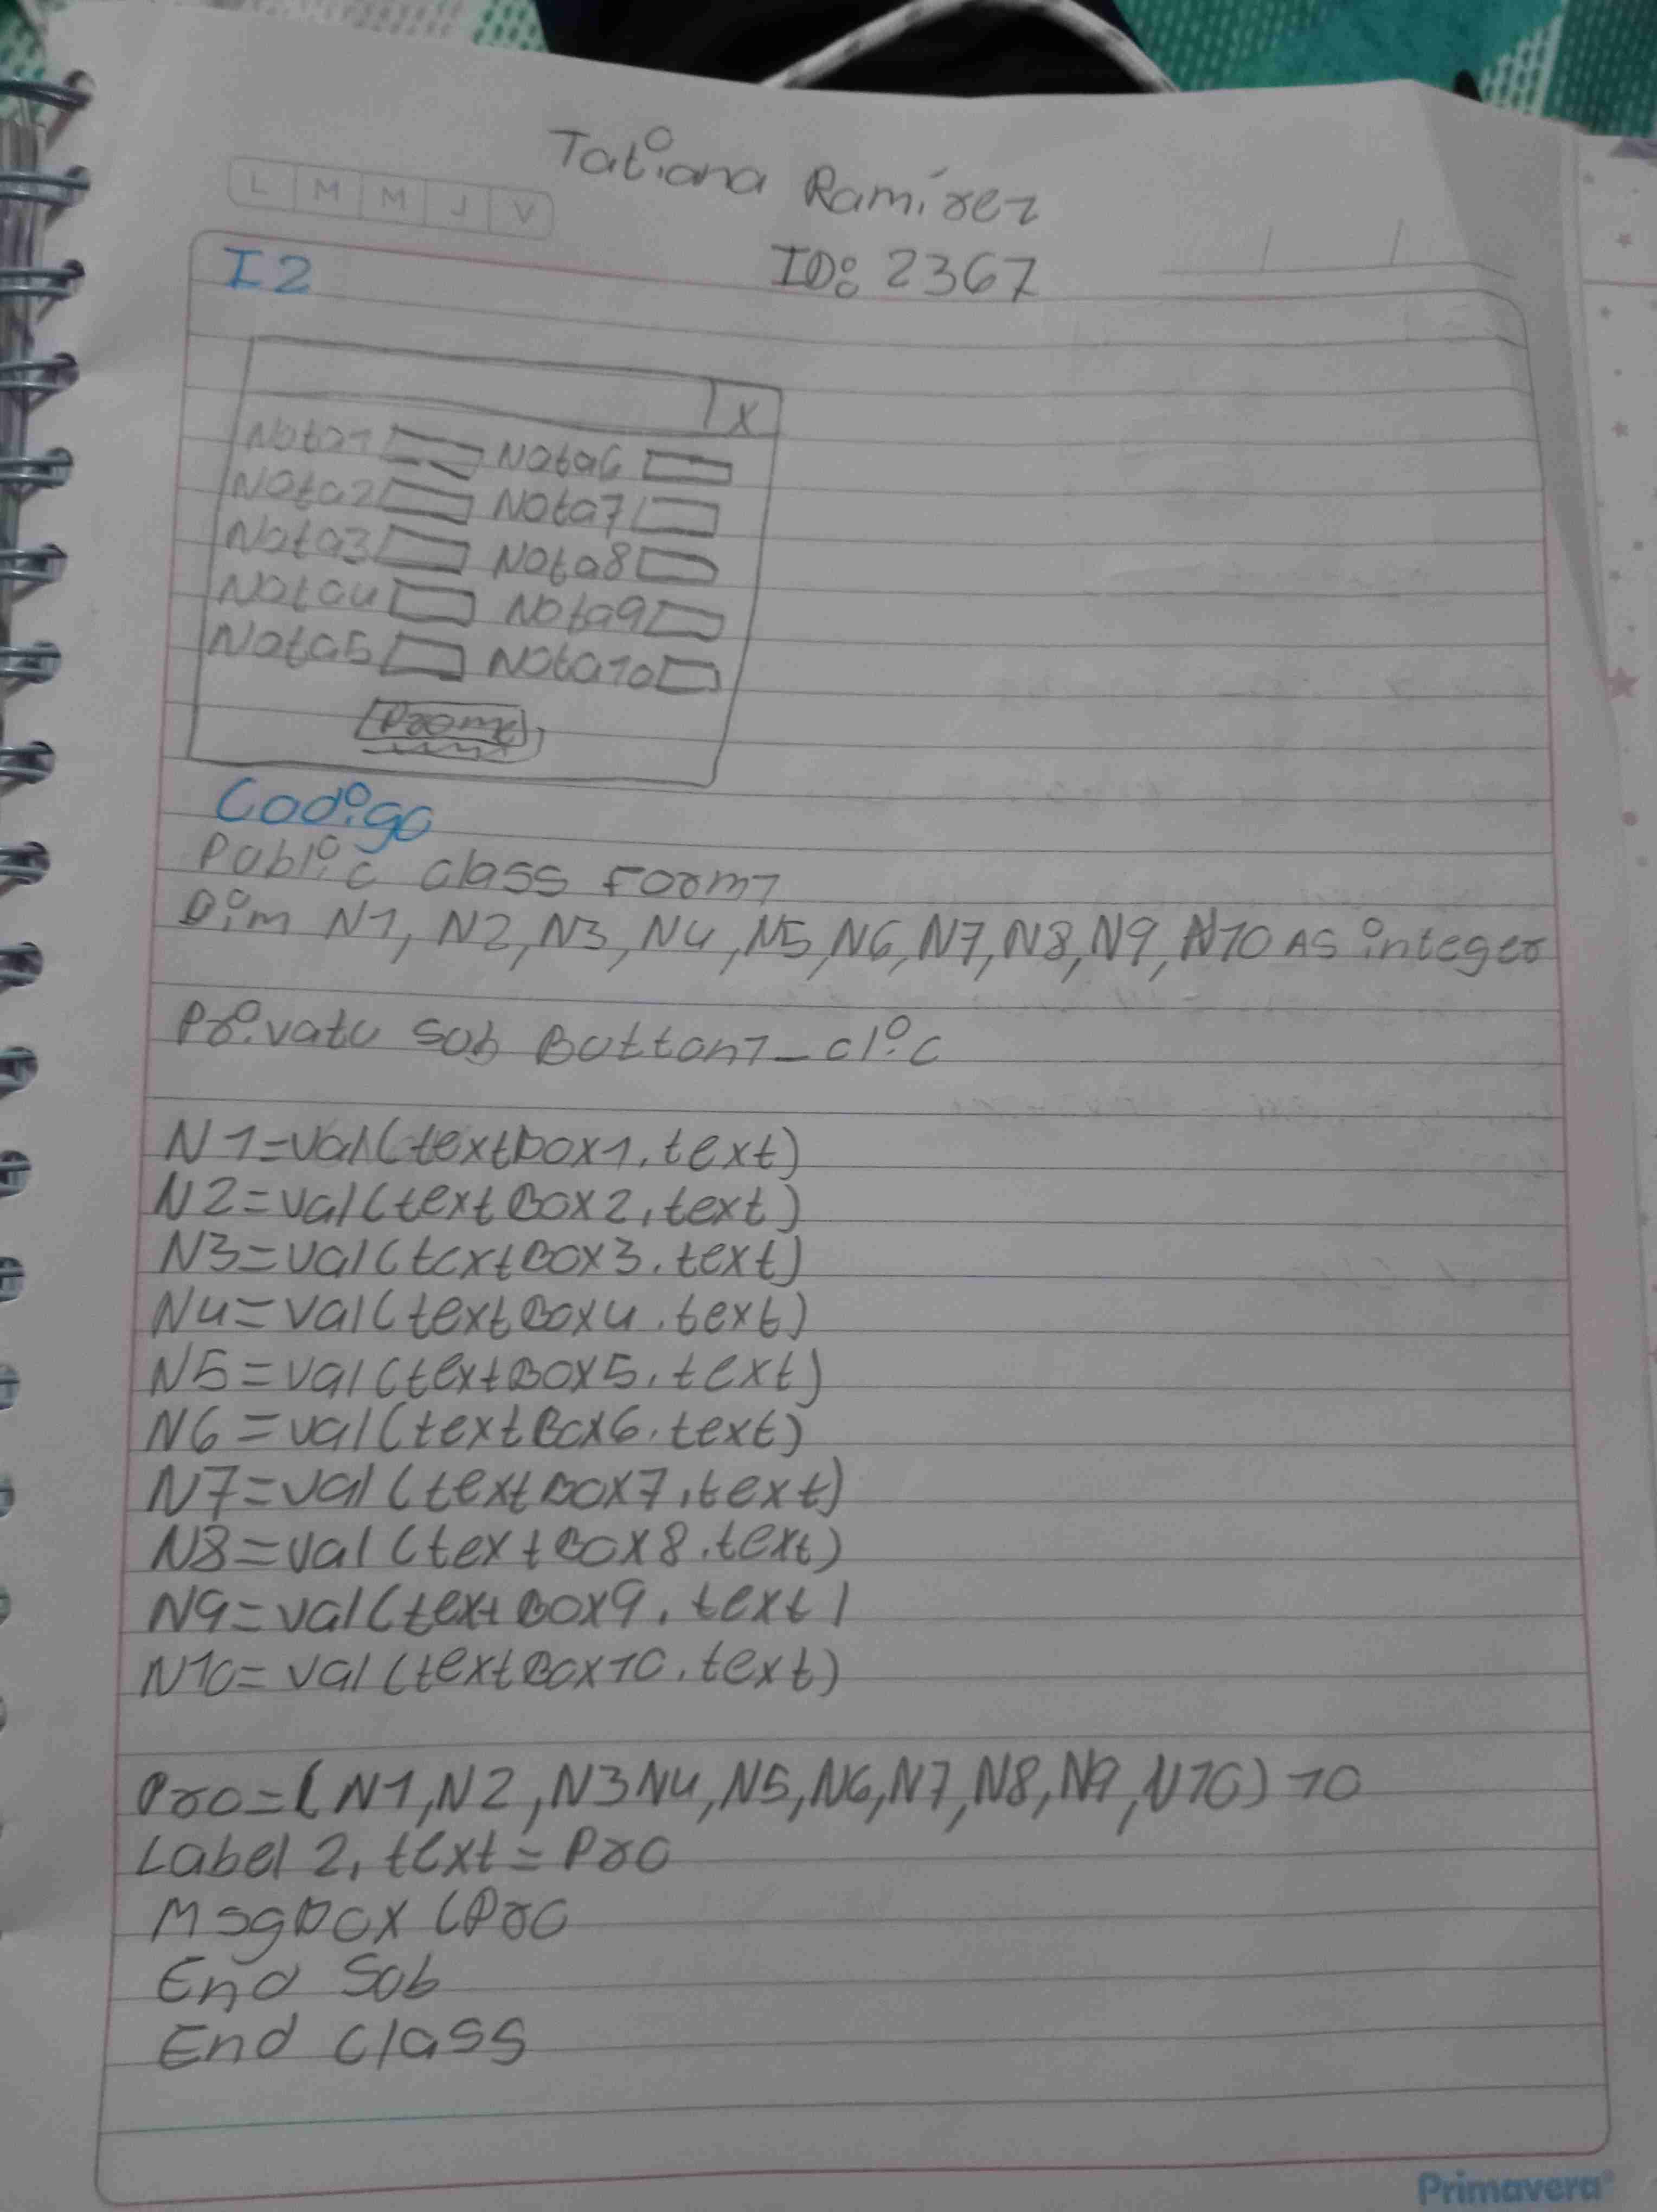 Tatiana Ramírez
L M M J V
I2
ID: 2367
X
Nota1 Nota6
Nota2 Nota7
Nota3 Nota8
Nota4 Nota9
Nota5 Nota10
Prome
Codigo
Public class Form1
Dim N1, N2, N3, N4, N5, N6, N7, N8, N9, N10 As integer
Private Sub Button1_clic
N1=val(textbox1.text)
N2=val(textBox2.text)
N3=val(textBox3.text)
N4=val(textBox4.text)
N5=val(textBox5.text)
N6=val(textBox6.text)
N7=val(textBox7.text)
N8=val(textBox8.text)
N9=val(textBox9.text)
N10=val(textBox10.text)
Pro=(N1,N2,N3N4,N5,N6,N7,N8,N9,N10) 10
Label2.text=Pro
Msgbox (Pro
End Sub
End class
Primavera